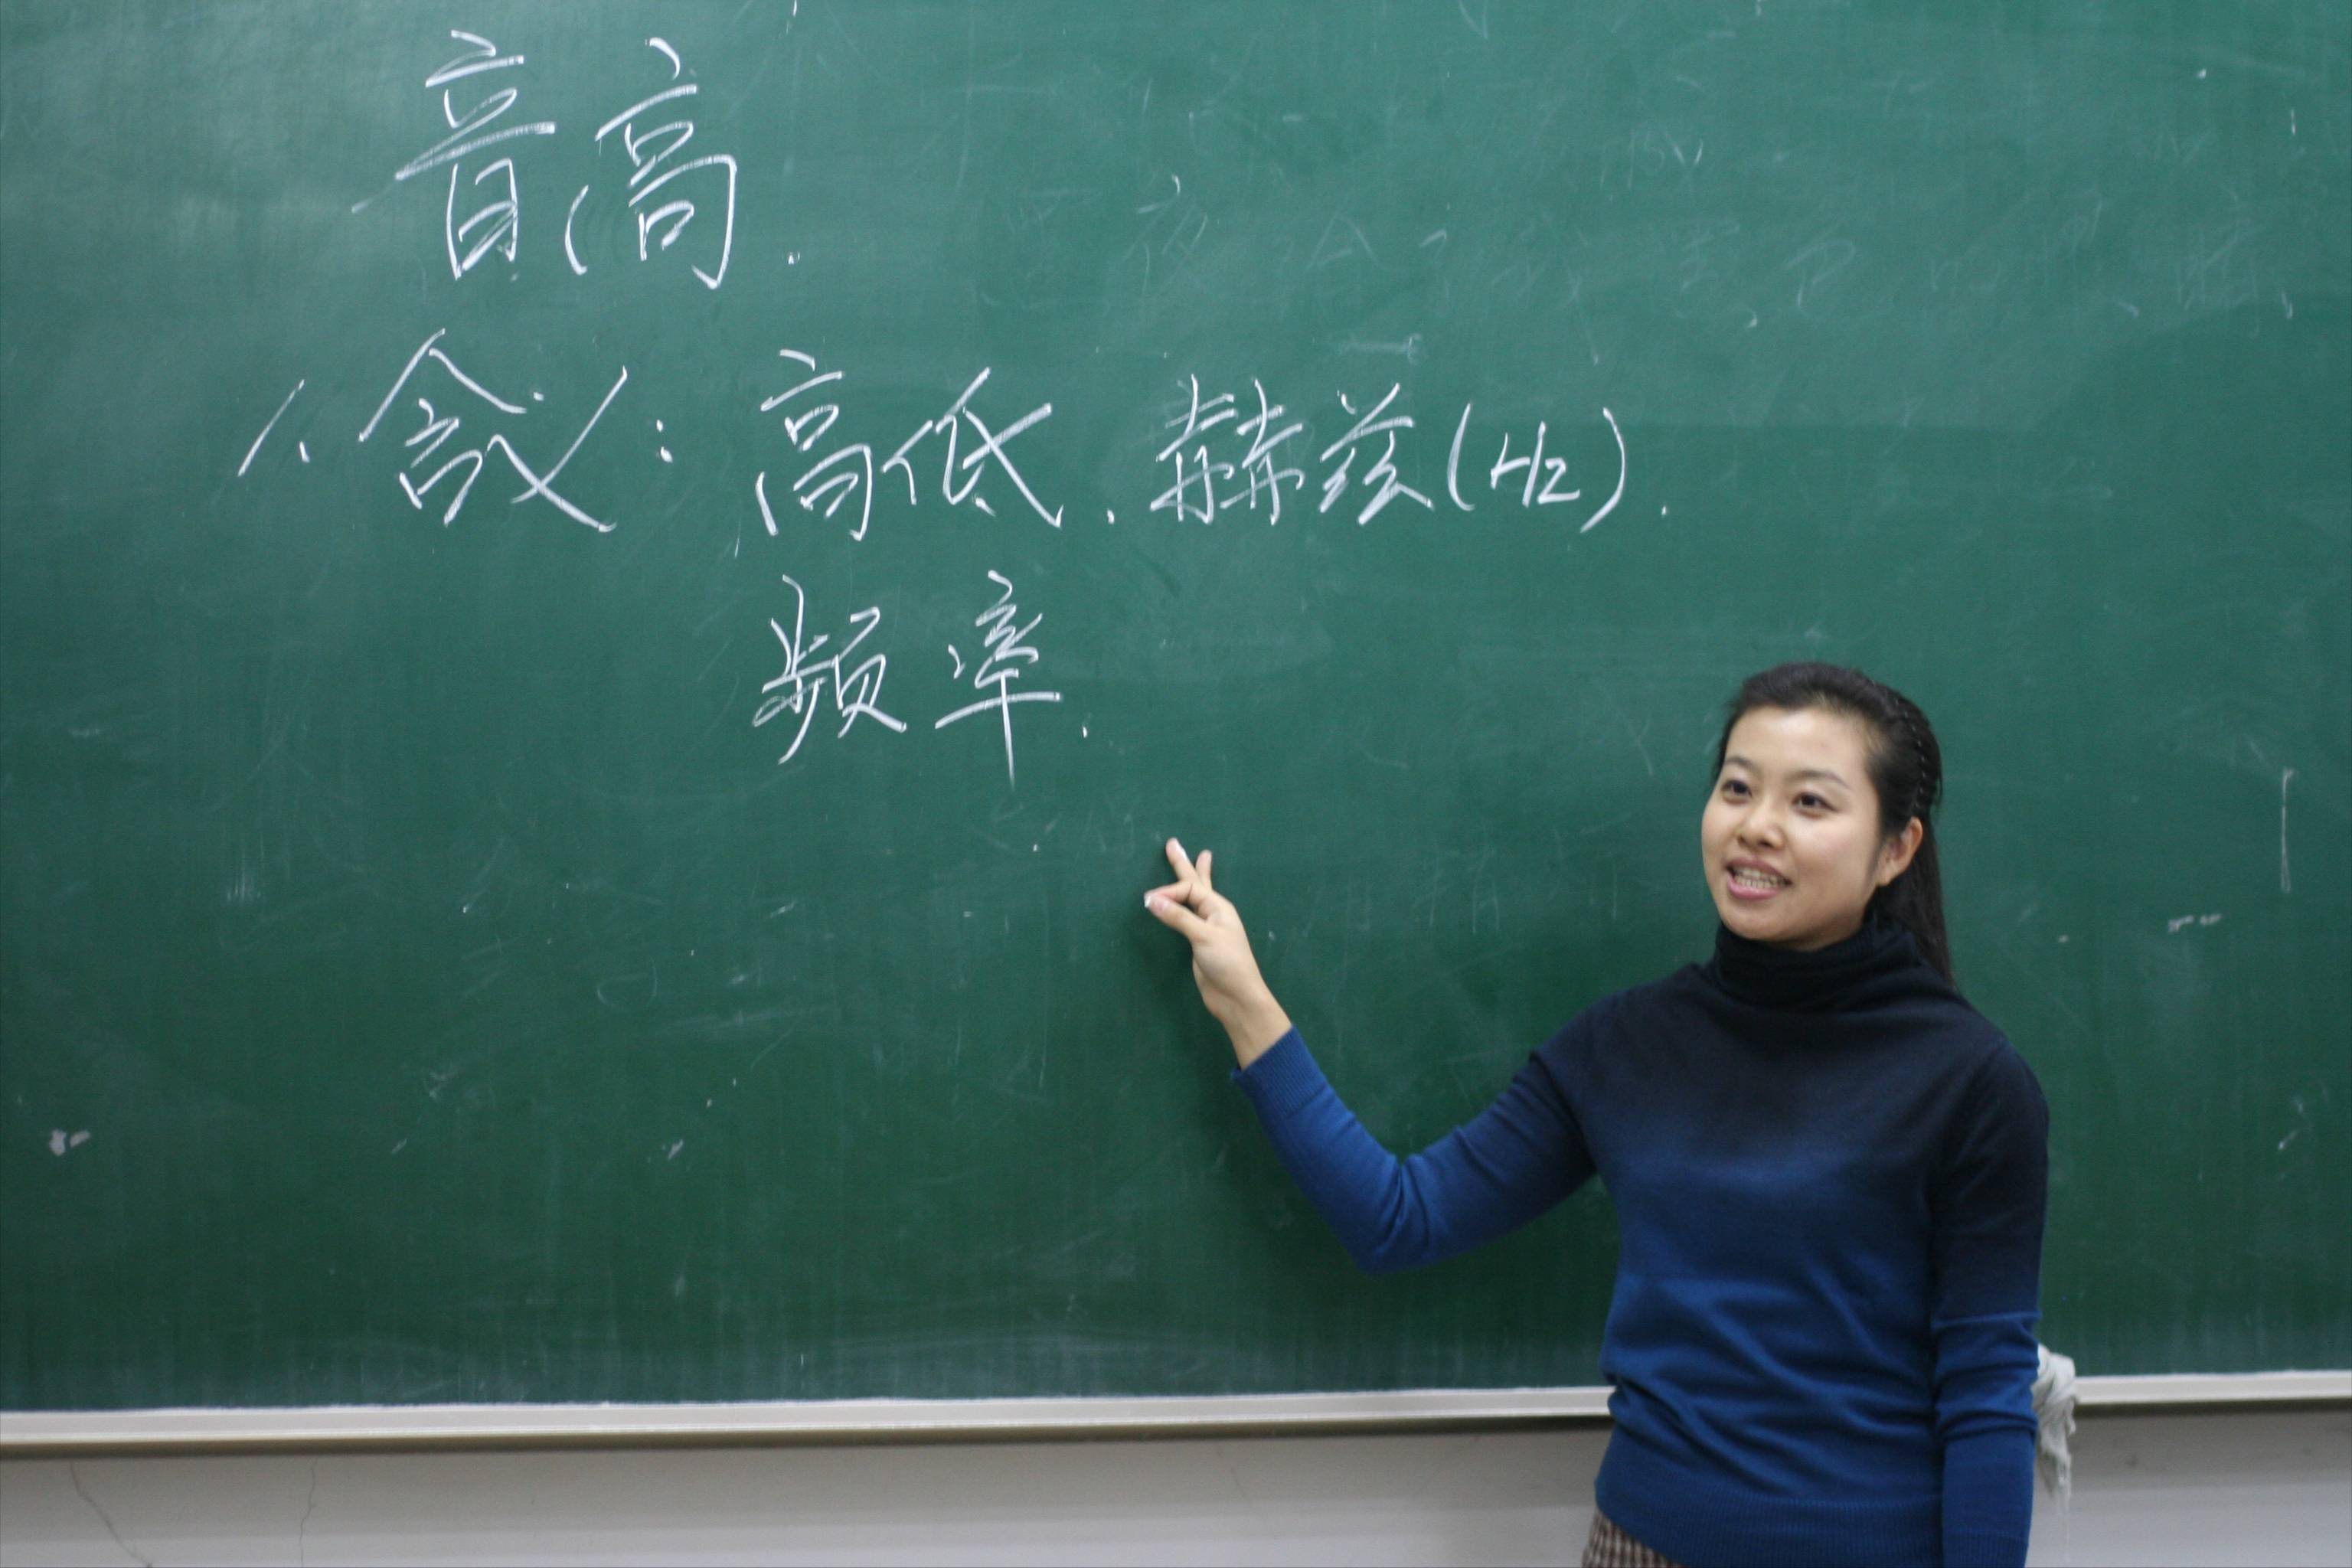 音高.
1. 含义：高低.赫兹(Hz).
频率.